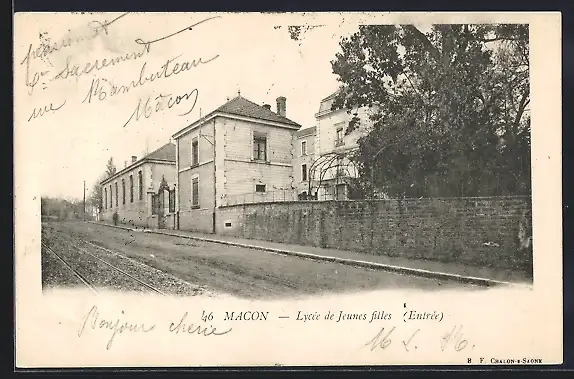 pension du
St Sacrement
rue Rambuteau
Mâcon
46 MACON — Lycée de Jeunes filles (Entrée)
Bonjour chérie
M. L. M.
B F. CHALON-S-SAONE